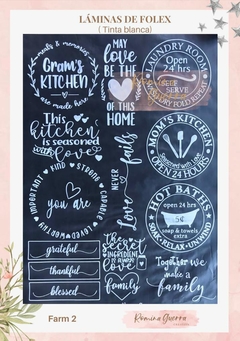 LÁMINAS DE FOLEX
( Tinta blanca)
meals & memories
Gram's
KITCHEN
are made here
MAY
love
BE THE
OF THIS
HOME
LAUNDRY ROOM
Open
24 hrs
SELF
SERVE
WASH DRY FOLD REPEAT
This
kitchen
is seasoned
with love
MOM'S KITCHEN
Seasoned with love
OPEN 24 HOURS
Love
NEVER
fails
KIND • STRONG • CAPABLE • LOVED • WORTHY • IMPORTANT
you are
HOT BATHS
Open
24 hrs
5¢
soap & towels
extra
SOAK • RELAX • UNWIND
grateful
thankful
blessed
The secret
INGREDIENT
is always
love
family
Together
we
make a
family
Farm 2
Romina Guerra